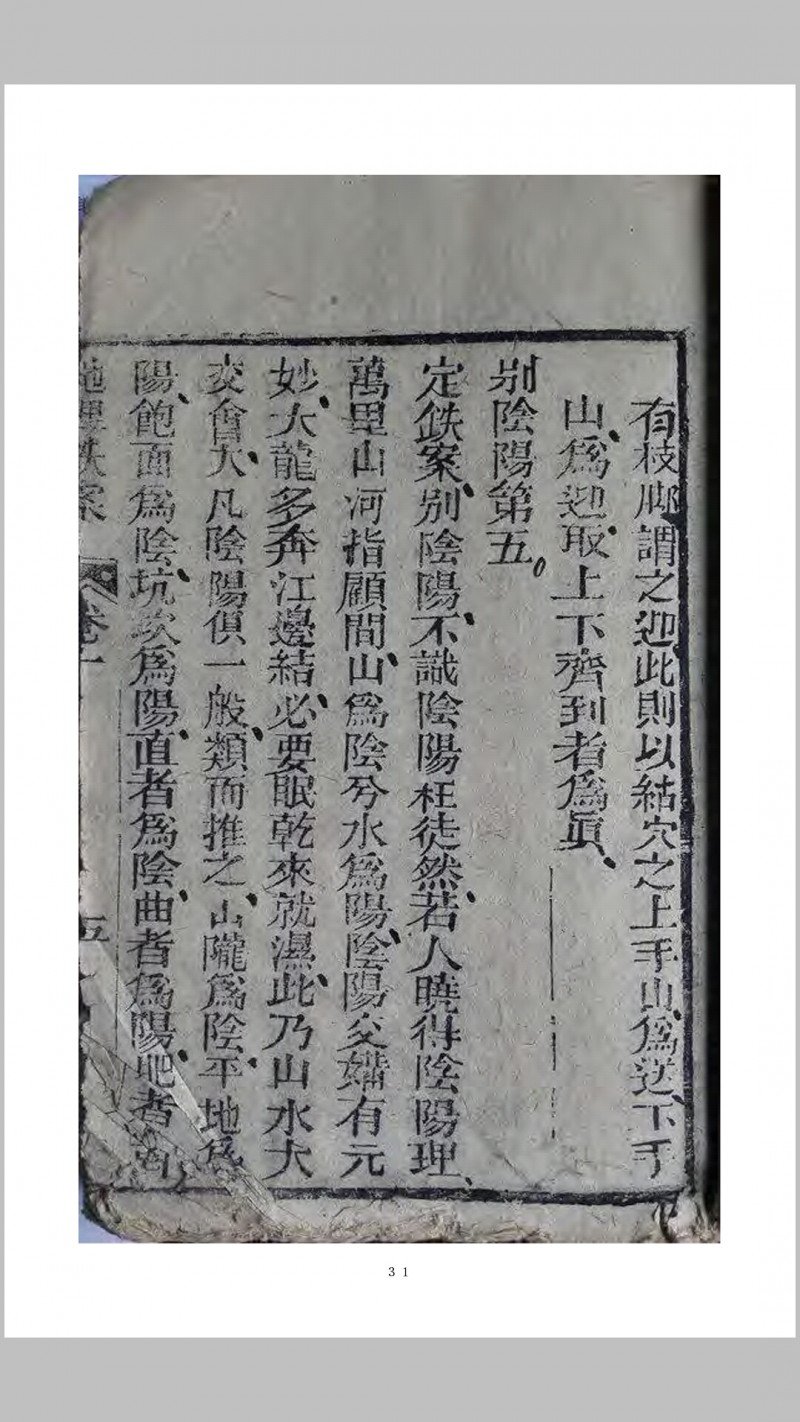 有枝脚謂之迎、此則以結穴之上手山、爲送、下手
山、爲迎、取上下齊到者爲眞、
別陰陽第五。
定鉄案、別陰陽、不識陰陽枉徒然、若人曉得陰陽理、
萬里山河指顧間、山爲陰兮水爲陽、陰陽交媾有元
妙、大龍多奔江邊結、必要眠乾來就濕、此乃山水大
交會、大凡陰陽俱一般、類而推之、山隴爲陰、平地爲
陽、飽面爲陰、坑坎爲陽、直者爲陰、曲者爲陽、肥者
地理鉄案 卷一 五
31